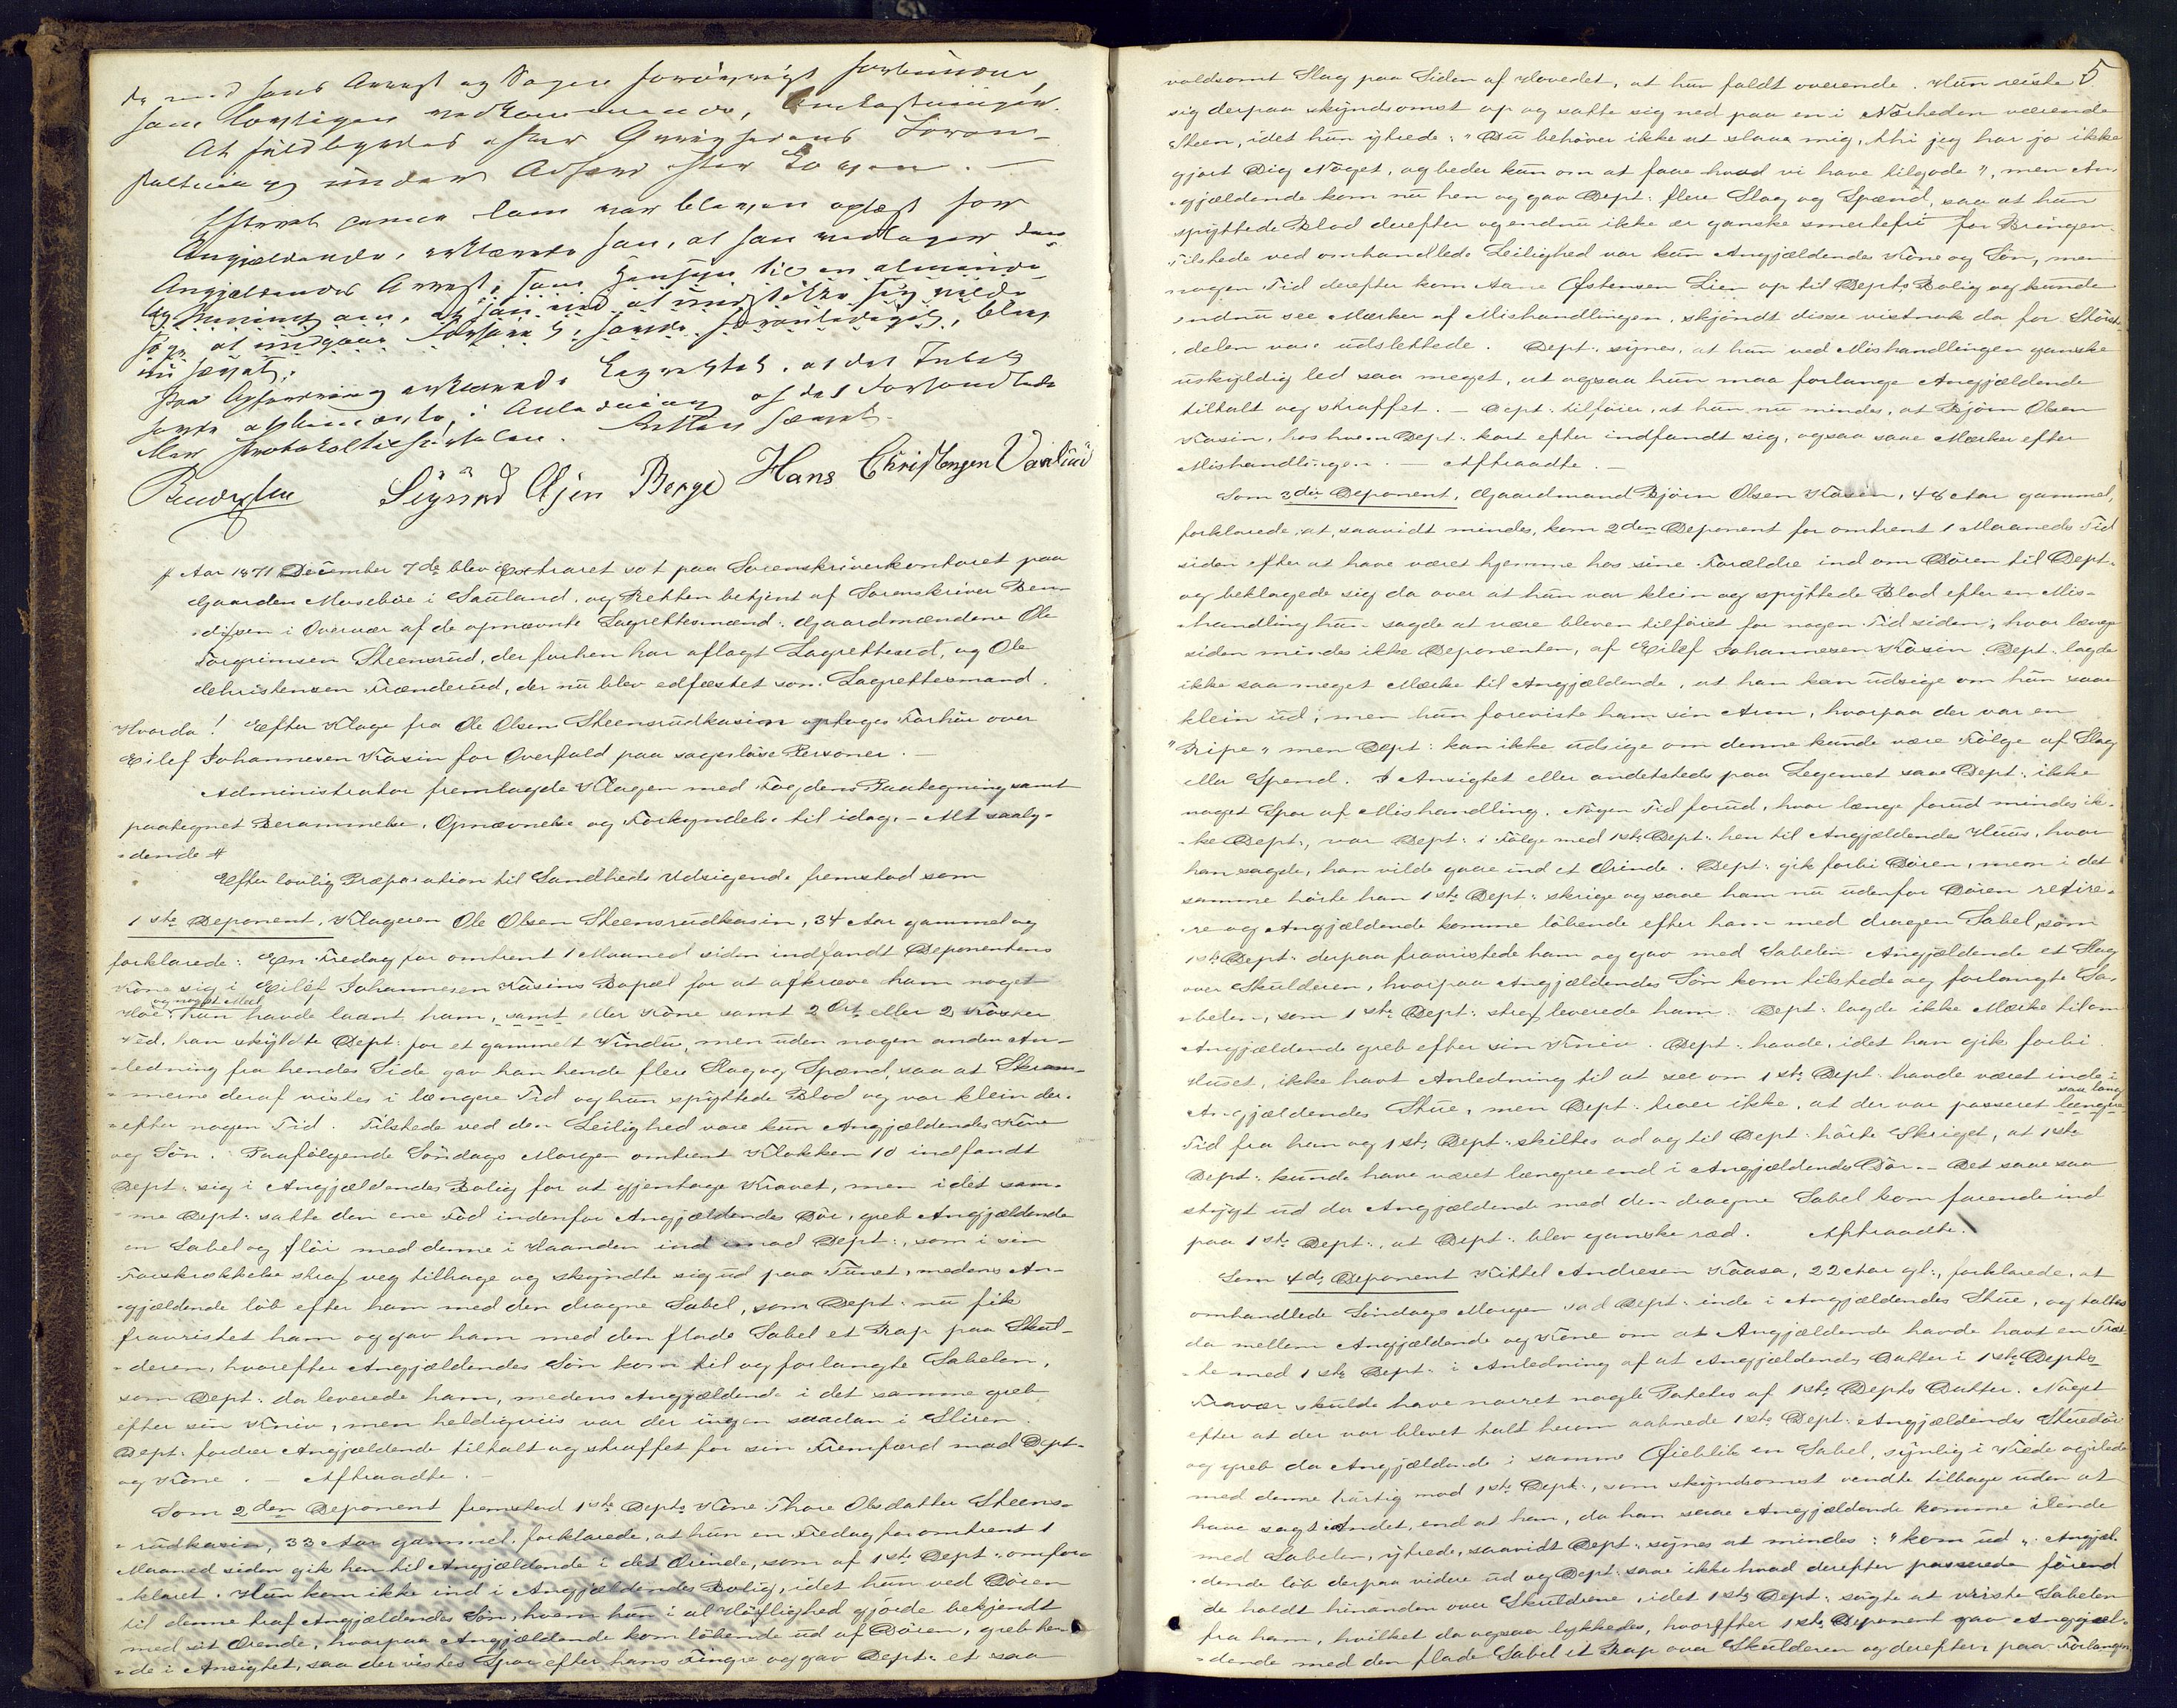 med hans Arrest og Sagen forøvrigt forbundne,
ham lovligen vedkommende, Omkostninger.
At fuldbyrdes efter Øvrighedens Foran-
staltning under Adfærd efter Loven. —
Efterat denne Dom var bleven oplæst for
Angjældende, erklærede han, at han vedtager den.
Angjældendes Arrest, som Hensyn til en alminde-
lig Mening om, at han ved at undstikke sig vilde
søge at undgaae Forhøret, havde foranlediget, blev
nu hævet.
Paa Opfordring erklærede Lagrettet, at det Intet
havde at bemærke i Anledning af det Forhandlede
eller Protokoltilførselen. Retten hævet.
Bendixen Sigurd Ojen Berge Hans Christensen Vaalüd
# Aar 1871 December 7de blev Extraret sat paa Sorenskriverkontoret paa
Gaarden Mosebøe i Sauland, og Retten betjent af Sorenskriver Ben-
dixen i Overvær af de opnævnte Lagrettesmænd: Gaardmændene Ole
Torgrimsen Steensrud, der forhen har aflagt Lagretteseed, og Ole
Christensen Frænderud, der nu blev edfæstet som Lagrettesmand.
Hvorda! Efter Klage fra Ole Olsen Steensrudkasin optages Forhør over
Eilef Johannesen Kasin for Overfald paa sagesløse Personer. —
Administrator fremlagde Klagen med Fogdens Paategning samt
paategnet Berammelse, Opnævnelse og Forkyndelse til idag. — Alt saaly-
dende #
Efter lovlig Præparation til Sandheds Udsigende fremstod som
1ste Deponent, Klageren Ole Olsen Steensrudkasin, 34 Aar gammel og
forklarede: En Fredag for omtrent 1 Maaned siden indfandt Deponentens
Kone sig i Eilef Johannesen Kasins Bopæl for at afkræve ham noget
og noget Meel
Høe, hun havde laant ham, samt der Kone samt 2 Ort eller 2 Kister
Ved, han skyldte Dept: for et gammelt Vindu, men uden nogen anden An-
ledning fra hendes Side gav han hende flere Slag og Spænd, saa at Skram-
merne deraf vistes i længere Tid og hun spyttede Blod og var klein der-
efter nogen Tid. Tilstede ved den Leilighed vare kun Angjældendes Kone
og Søn. Paafølgende Søndags Morgen omtrent Klokken 10 indfandt
Dept: sig i Angjældendes Bolig for at gjentage Kravet, men idet sam-
me Dept: satte den ene Fod indenfor Angjældendes Dør, greb Angjældende
en Sabel og fløi med denne i Haanden ind imod Dept:, som i sin
Forskrækkelse strax veg tilbage og skyndte sig ud paa Tunet, medens An-
gjældende løb efter ham med den dragne Sabel, som Dept: nu fik
fravristet ham og gav ham med den flade Sabel et Rap paa Skul-
deren, hvorefter Angjældendes Søn kom til og forlangte Sabelen,
som Dept: da leverede ham, medens Angjældende i det samme greb
efter sin Kniv, men heldigviis var der ingen saadan i Sliren.
Dept: fordrer Angjældende tiltalt og straffet for sin Fremfærd mod Dept:
og Kone. — Aftraadte. —
Som 2den Deponent fremstod 1ste Depts Kone Thore Olsdatter Steens-
rudkasin, 33 Aar gammel, forklarede, at hun en Fredag for omtrent 1
Maaned siden gik hen til Angjældende i det Ærinde, som af 1ste Dept: omfor-
klaret. Hun kom ikke ind i Angjældendes Bolig, idet hun ved Døren
til denne traf Angjældendes Søn, hvem hun i al Høflighed gjorde bekjendt
med sit Ærende, hvorpaa Angjældende kom løbende ud af Døren, greb hen-
de i Ansigtet, saa der vistes Spor efter hans Fingre og gav Dept: et saa
5
voldsomt Slag paa Siden af Hovedet, at hun faldt overende. Hun reiste
sig derpaa skyndsomst op og satte sig ned paa en i Nærheden værende
Steen, idet hun ytrede: "Du behøver ikke at slaae mig, thi jeg har jo ikke
gjort Dig Noget, og beder kun om at faae hvad vi have tilgode", men An-
gjældende kom nu hen og gav Dept: flere Slag og Spænd, saa at hun
spyttede Blod derefter og endnu ikke er ganske smertefri for Bringen.
Tilstede ved omhandlede Leilighed var kun Angjældendes Kone og Søn, men
nogen Tid derefter kom Aane Østensen Lien op til Depts Bolig og kunde
endnu see Mærker af Mishandlingen, skjøndt disse vistnok da for Størst-
delen vare udslettede. Dept: synes, at hun ved Mishandlingen ganske
uskyldig led saa meget, at ogsaa hun maa forlange Angjældende
tiltalt og straffet. — Dept: tilføier, at hun nu mindes, at Bjørn Olsen
Kasin, hos hvem Dept: kort efter indfandt sig, ogsaa saae Mærker efter
Mishandlingen. — Aftraadte. —
Som 3die Deponent, Gaardmand Bjørn Olsen Kasin, 48 Aar gammel,
forklarede, at, saavidt mindes, kom 2den Deponent for omtrent 1 Maaneds Tid
siden efter at have været hjemme hos sine Forældre ind om Døren til Dept:
og beklagede sig da over at hun var klein og spyttede Blod efter en Mis-
handling hun sagde at være bleven tilføiet for nogen Tid siden, hvor længe
siden mindes ikke Deponenten, af Eilef Johannesen Kasin. Dept: lagde
ikke saa meget Mærke til Angjældende, at han kan udsige om hun saae
klein ud, men hun foreviste ham sin Arm, hvorpaa der var en
"Ripe" men Dept: kan ikke udsige om denne kunde være Følge af Slag
eller Spend. I Ansigtet eller andetsteds paa Legemet saae Dept: ikke
noget Spor af Mishandling. Nogen Tid forud, hvor længe forud mindes ik-
ke Dept:, var Dept: i Følge med 1ste Dept: hen til Angjældendes Huus, hvor
han sagde, han vilde gaae ind et Ærinde. Dept: gik forbi Døren, men i det
samme hørte han 1ste Dept: skrige og saae ham nu udenfor Døren retire-
re og Angjældende komme løbende efter ham med dragen Sabel, som
1ste Dept: derpaa fravristede ham og gav med Sabelen Angjældende et Slag
over Skulderen, hvorpaa Angjældendes Søn kom tilstede og forlangte Sa-
belen, som 1ste Dept: strax leverede ham. Dept: lagde ikke Mærke til om
Angjældende greb efter sin Kniv. Dept: havde, idet han gik forbi
Huset, ikke havt Anledning til at see om 1ste Dept: havde været inde i
saa lang
Angjældendes Stue, men Dept: troer ikke, at der var passeret længere
Tid fra han og 1ste Dept: skiltes ad og til Dept: hørte Skriget, at 1ste
Dept: kunde have været længere end i Angjældendes Dør. — Det saae saa
stygt ud da Angjældende med den dragne Sabel kom farende ind
paa 1ste Dept:, at Dept: blev ganske ræd. Aftraadte.
Som 4de Deponent Kittel Andresen Kaasa, 22 Aar gl:, forklarede, at
omhandlede Søndags Morgen sad Dept: inde i Angjældendes Stue, og taltes
da mellem Angjældende og Kone om at Angjældende havde havt en Træt-
te med 1ste Dept: i Anledning af at Angjældendes Datter i 1ste Depts
Fravær skulde have narret nogle Poteter af 1ste Depts Datter. Noget
efter at der var blevet talt herom aabnede 1ste Dept: Angjældendes Stuedør
og greb da Angjældende i samme Øieblik en Sabel, synlig i Vrede og ilede
med denne hurtig mod 1ste Dept:, som skyndsomst vendte tilbage uden at
have sagt Andet, end at han, da han saae Angjældende komme ilende
med Sabelen, ytrede, saavidt Dept: synes at mindes: "kom ud". Angjæl-
dende løb derpaa videre ud og Dept: saae ikke hvad derefter passerede førend
de holdt hinanden over Skuldrene, idet 1ste Dept: søgte at vriste Sabelen
fra ham, hvilket da ogsaa lykkedes, hvorefter 1ste Deponent gav Angjæl-
dende med den flade Sabel et Rap over Skulderen og derefter paa Forlangen